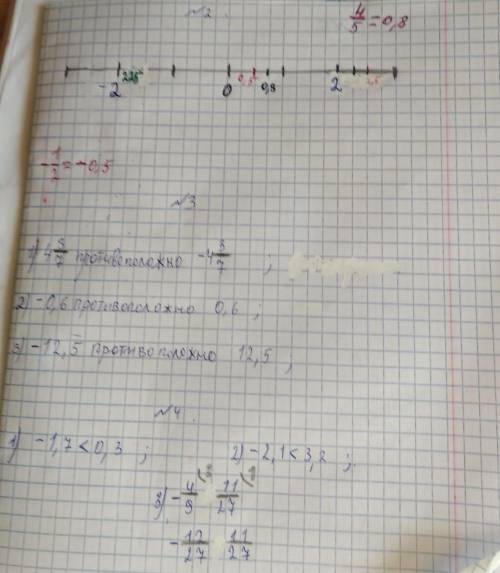 №2.
4/5 = 0,8
-2 2,25 0 0,5 0,8 2
-1/2 = -0,5
№3
1) 4 3/7 противоположно -4 3/7 ;
2) -0,6 противоположно 0,6 ;
3) -12,5 противоположно 12,5 ;
№4.
1) -1,7 < 0,3 ; 2) -2,1 < 3,2 ;
3) -4/9 11/27
-12/27 11/27